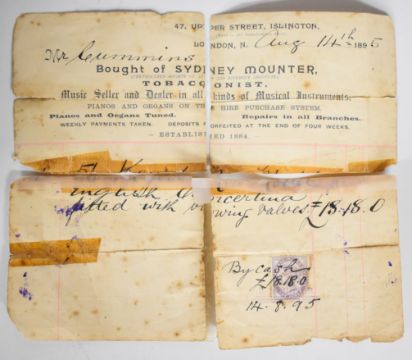 47, UPPER STREET, ISLINGTON,
LONDON, N. Aug 14th 1895
Mr Cummins
Bought of SYDNEY MOUNTER,
TOBACCONIST,
Music Seller and Dealer in all kinds of Musical Instruments.
PIANOS AND ORGANS ON THE HIRE PURCHASE SYSTEM.
Pianos and Organs Tuned. Repairs in all Branches.
WEEKLY PAYMENTS TAKEN. DEPOSITS FORFEITED AT THE END OF FOUR WEEKS.
ESTABLISHED 1884.
English Concertina
fitted with bowing valves £18.18.0
By cash
£18.18.0
14.8.95